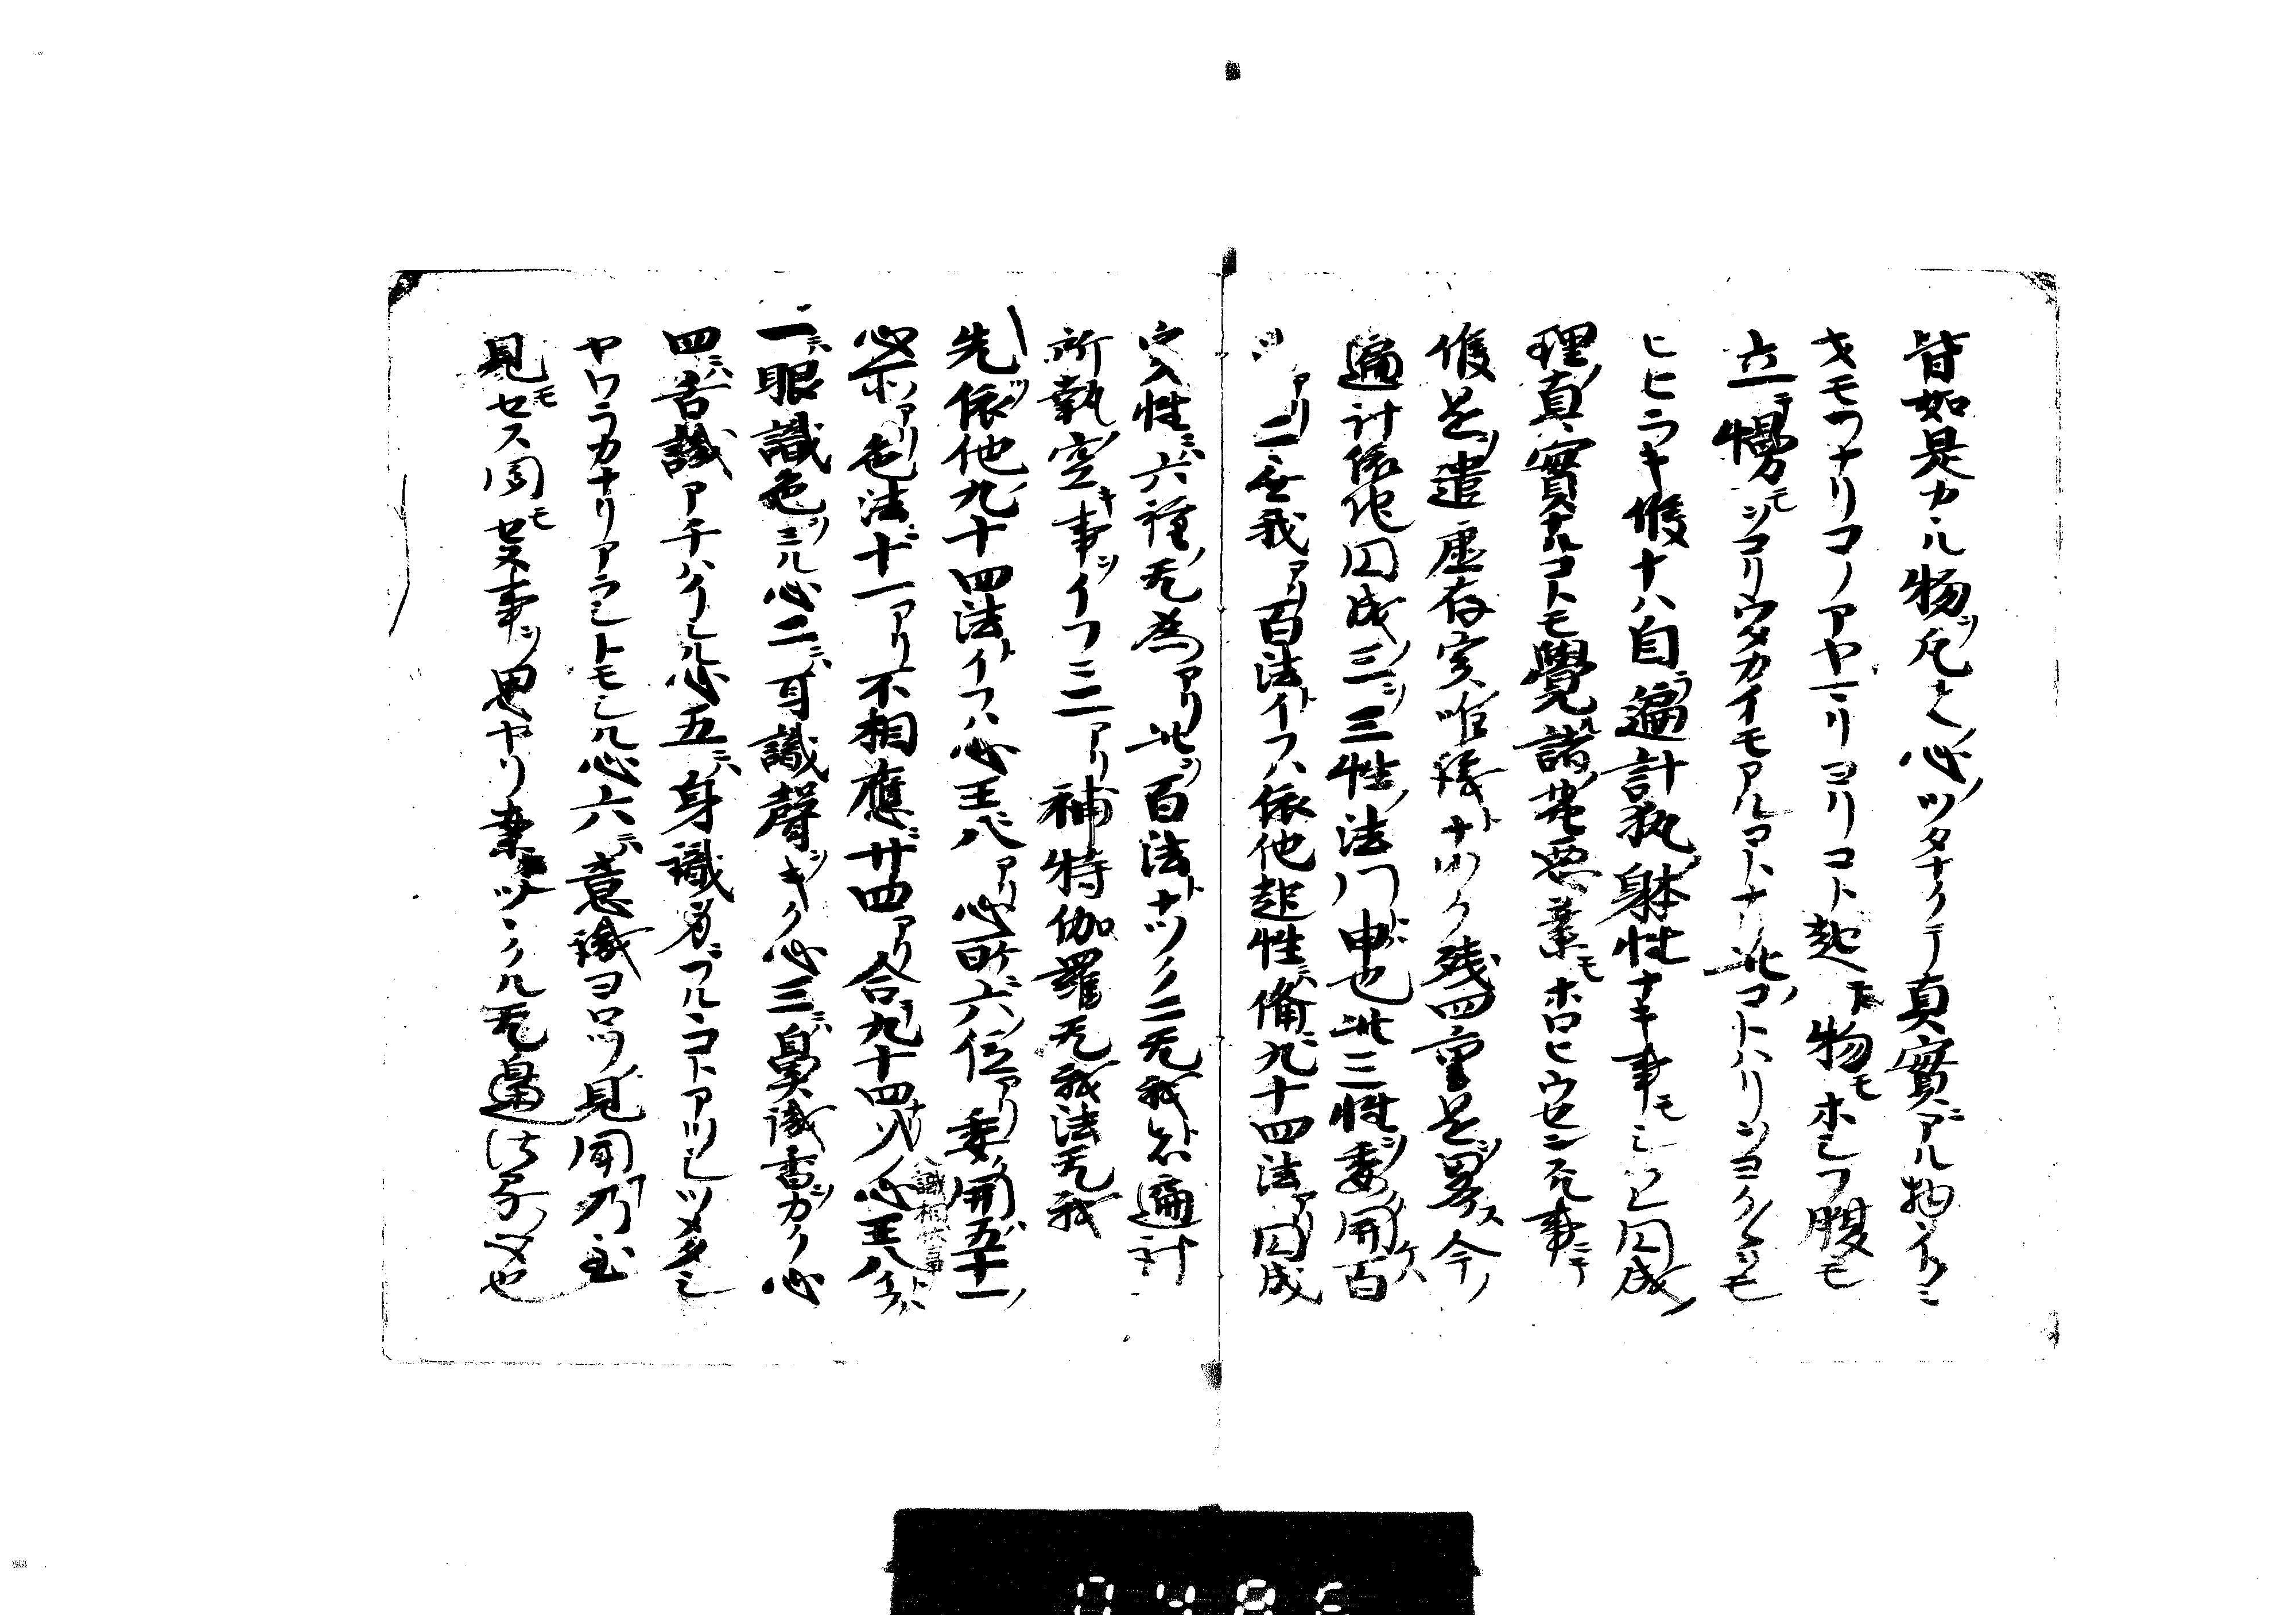 皆如是カル物ヲ凡ソ心ノツタナクテ真實ニアル物トノミ
キモフナリコノアヤマリヨリコト起テ物モホシフ腹モ
立テ慢モヲコリウタカイモアルコトナリ此コトハリヲヨク〱モ
ヒヒラキ候ナハ自ラ遍計執躰性ナキ事モシラレ円成ノ
理ノ真實ナルコトモ覺諸ノ業悪業モホロヒウセン事ニテ
候是ヲ遣虚存実唯識トナツク残四重是ヲ畧ス今ノ
遍計依他円成ノ三ヲ三性ノ法門ト申也此三性ヲ委ク開ケハ百
アリ二無我アリ百法トイフハ依他起性ニ備九十四法アリ円成
実性ニ六種ノ无為アリ此ヲ百法トナツク二无我トハ遍計
所執ノ空キ事ヲイフニ二アリ補特伽羅无我法无我
先ツ依他九十四法トイフハ心王ニ八アリ心所ニ六位アリ委ク開五十一
心所アリ色法ニ十一アリ不相應ニ廿四アリ合九十四ナリ心王八トハ
八識相状事
一ニハ眼識色ヲミル心二ニハ耳識聲ヲキク心三ニハ鼻識香ヲカク心
四ニハ舌識アチハイヲシル心五ニハ身識身ニフルヽコトアツシツメタシ
ヤワラカナリアラシトモシル心六ニハ意識ヨロツノ見聞乃至
見モセス聞モセヌ事ヲ思ヤリ兼ツヽクル无邊